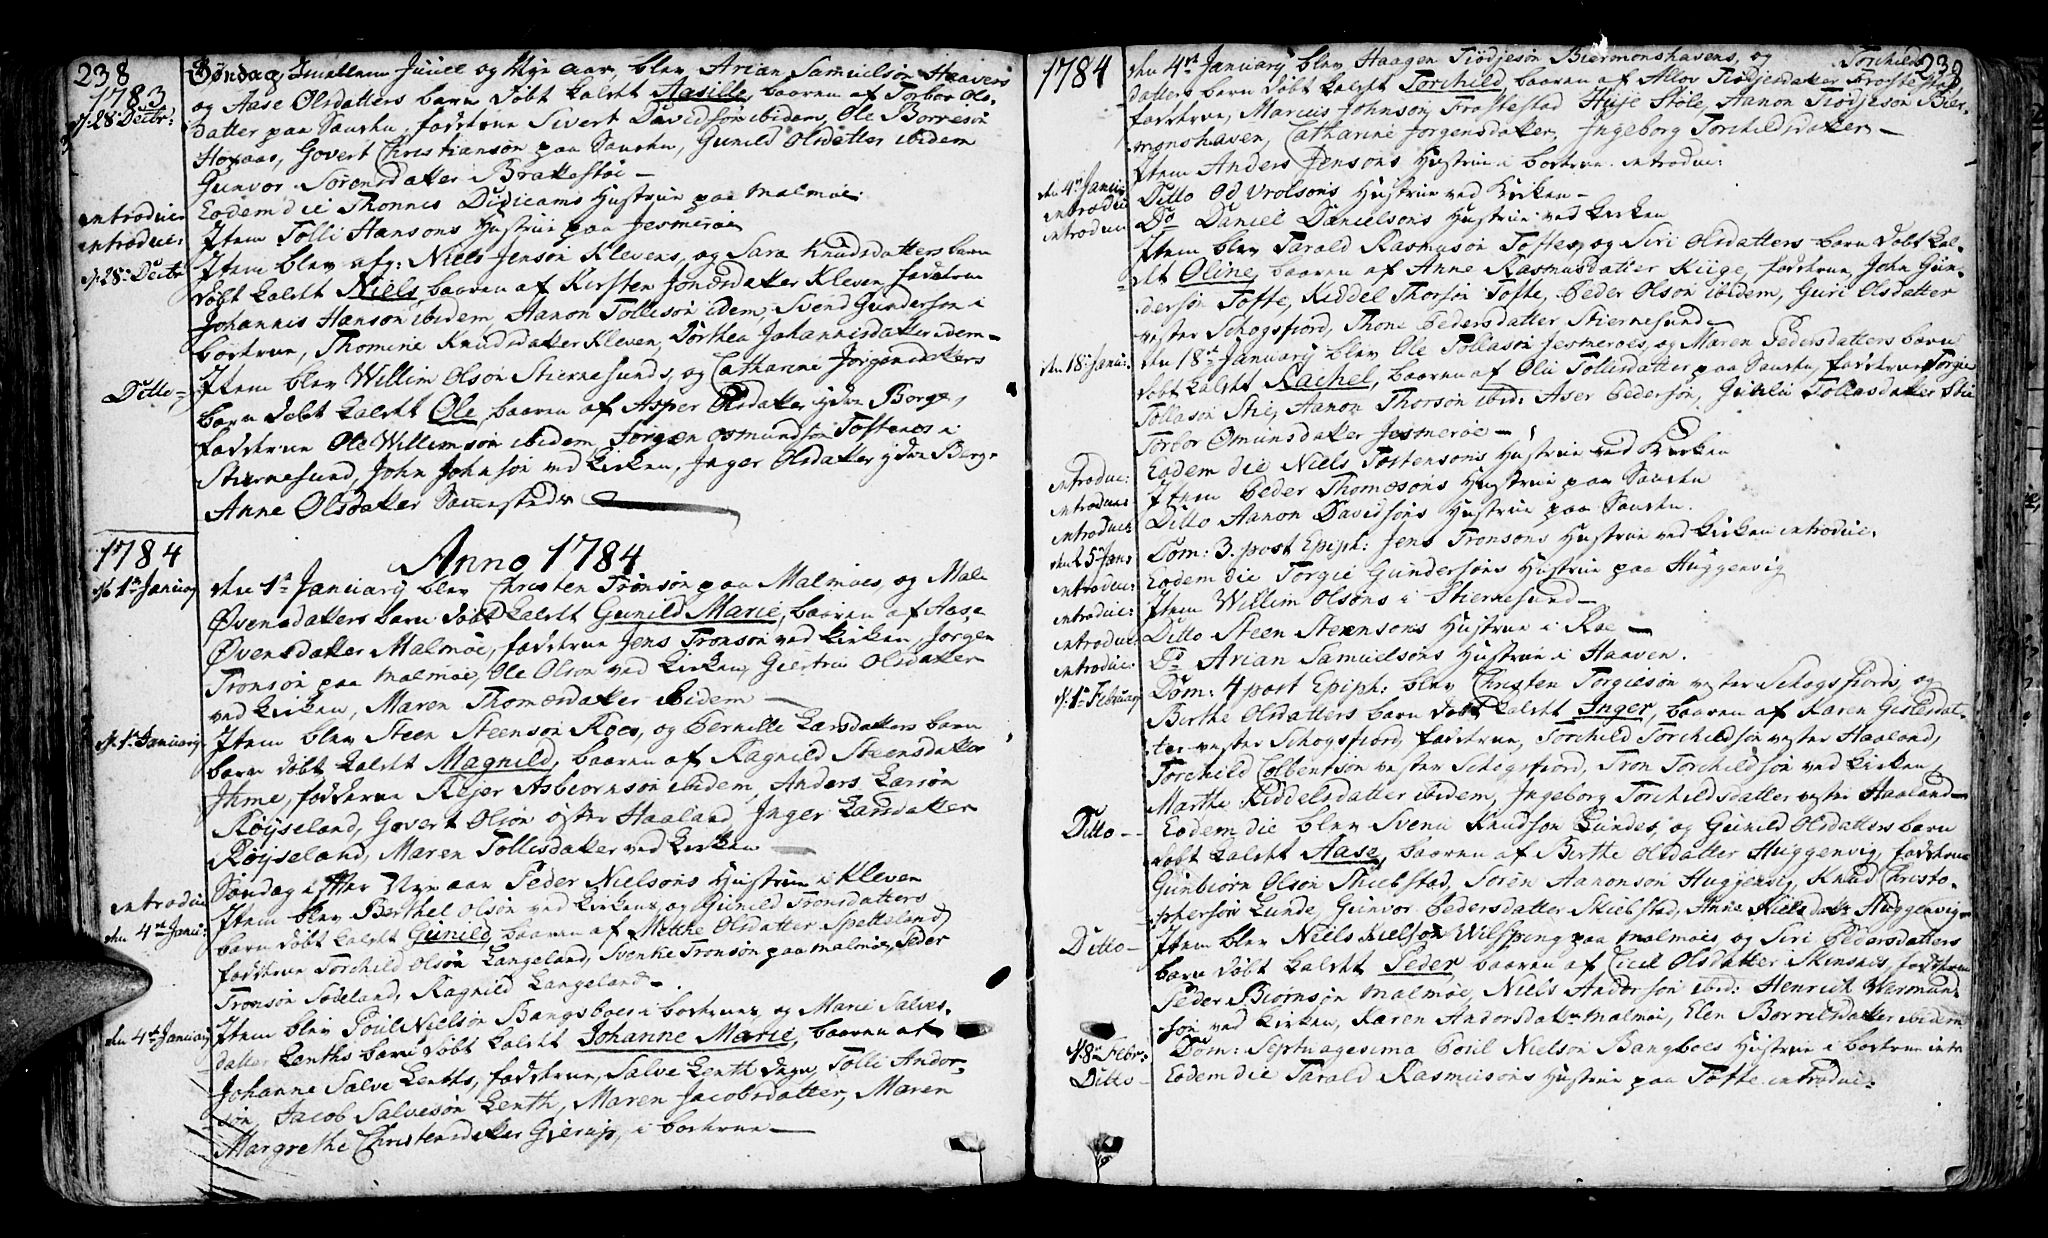 238
1783
d: 28 Decbr:
Söndag Imellem Juuel og Nye aar, blev Arian Samuelsøn Haavens
og Aase Olsdatters barn døbt kaldt Aasille, baaren af Torbor Ols-
datter paa Sanden, fadderne Sivert Davidsøn ibidem, Ole Borresøn
Govert Christiansøn paa Sanden, Gunild Olsdatter ibidem
Gunvor Sørensdatter Brakestøe
introduc: Eodem die Thonnis Hustrue paa Malmøe
introduc: Item Tolli Hansens Hustrue paa Jesmerøe
d: 28 Decbr Item blev afg: Niels Jensøn Klevens, og Sara Knudsdatters barn
døbt kaldt Niels, baaren af Kirsten Jonsdatter Kleven, fadderne
Johannis Hansøn ibidem, Aanon Tollisøn idem, Svend Gundersøn i
bortrue, Thomine Knudsdatter Kleven, Dorthea Johannisdatter idem
Ditto Item blev Willim Olsøn Stiernesunds, og Catharine Jørgensdatters
barn døbt kaldt Ole, baaren af Asper Olsdatter
fadderne Ole Willimsøn ibidem, Jørgen Osmundsøn Tostenes i
Stiernesund, John Johnsøn ved Kirken, Inger Olsdatter
Anne Olsdatter
1784
Anno 1784
d: 1te January den 1te January blev Christen Trønsøn paa Malmøes, og Mali
Øvensdatters barn døbt kaldt Gunild Marie, baaren af Aase
Øvensdatter Malmøe, fadderne Jens Tronsøn ved Kirken, Jørgen
Tronsøn paa Malmøe, Ole Olsøn ved Kirken, Giertru Olsdatter
ved Kirken, Maren Thomesdatter ibidem
d: 1te January Item blev Steen Steensøn Roes, og Pernille Larsdatters barn
barn døbt kaldt Magnild, baaren af Ragnild Steensdatter
Ihme, fadderne Rejer Asbiornsøn ibidem, Anders Larsøn
Røyseland, Govert Olsøn øster Haaland, Inger Larsdatter
Røyseland, Maren Tollisdatter ved Kirken
introduc Søndag efter Nye aar Peder Nielsøns Hustrue i Kleven
den 4de Janu: Item blev Berthel Olsøn ved Kirkens, og Gunild Tronsdatters
barn døbt kaldt Gunild, baaren af Mette Olsdatter Spetteland,
fadderne Torchild Olsøn Langeland, Svenke Tronsøn paa Malmøe, Peder
Tronsøn Sødeland, Ragnild Langeland
den 4de January Item blev Poul Nielsøn Bangsboes i bortrues, og Marie Salves-
datter Lenths barn døbt kaldt Johanne Marie, baaren af
Johanne Salve Lenths, fadderne, Salve Lenth, Tolli Ander-
søn, Jacob Salvesøn Lenth, Maren Jacobsdatter, Maren
Margrethe Christensdatter Gierup, i bortrue
1784
238
den 4de January blev Haagen Tiødjesøn Biermonshavens, og Torchilds-
datters barn døbt kaldt Torchild, baaren af Allov Tiødjesdatter Frostestad
fadderne, Marcus Johnsøn Frostestad, Aanon Tiødjesøn Bier-
monshaven, Catharine Jørgensdatter, Ingeborg Torchildsdatter
Item Anders Jensøns Hustrue i bortrue introduc:
den 4de Janu: Ditto Od Vrolsøns Hustrue ved Kirken
introduc Do Daniel Danielsøns Hustrue ved Kirken
introduc Item blev Tarald Rasmusøn Toftes, og Siri Olsdatters barn døbt kal-
dt Oline, baaren af Anne Rasmusdatter Kiige, fadderne, John Gun-
dersøn Tofte, Kiddel Thorsøn Tofte, Peder Olsøn ibidem, Guri Olsdatter
vester Schogsfiord, Thone Pedersdatter Stiernesund
den 18 Janu: den 18de January blev Ole Tollasøn Jesmerøes, og Maren Pedersdatters barn
døbt kaldt Rachel, baaren af Oli Tollisdatter paa Sanden, fadderne Torgie
Tollasøn Stie, Aanon Thorsøn ibid: Aser Pedersøn, Tollasdatter Stie
Torbor Omunsdatter Jesmerøe
introduc: Eodem die Niels Tostensøns Hustrue ved Kirken
introduc: Item Peder Thomesøns Hustrue paa Sanden
introduc: Ditto Aanon Davidsøns Hustrue paa Sanden.
den 25 Jan: Dom: 3. post Epiph: Jens Tronsøns Hustrue ved Kirken introduc.
introduc: Eodem die Torgie Gundersøns Hustrue paa Huggenvig
introduc: Item Willim Olsøns i Stiernesund
introduc: Ditto Steen Steensøns Hustrue i Roe
introduc: Do Arian Samuelsøns Hustrue i Haaven.
d: 1te February Dom: 4 post Epiph: blev Christen Torgiesøn vester Schogsfiords, og
Berthe Olsdatters barn døbt kaldt Inger, baaren af Karen Gislesdat-
ter vester Schogsfiord, fadderne, Torchild Torchildsøn vester Haaland,
Torchild Colbentsøn vester Schogsfiord, Tron Torchildsøn ved Kirken,
Marthe Kiddelsdatter ibidem, Ingeborg Torchildsdatter vester Haaland
Ditto Eodem die blev Svenu Knudsøn Lundes, og Gunild Olsdatters barn
døbt kaldt Aase, baaren af Berthe Olsdatter Huggenvig, fadderne
Gunbiørn Olsøn Skiebstad, Sørén Aanonsøn Huggenvig, Knud Christo-
phersøn Lunde, Gunvor Pedersdatter Skiebstad, Anne Nielsdatr Huggenvig
Ditto Item blev Niels Nielsøn paa Malmøes, og Siri Pedersdatters
barn døbt kaldt Peder, baaren af Cicil Olsdatter Skinsnes, fadderne
Peder Biørnsøn Malmøe, Niels Andersøn ibid: Henrich Warmund-
søn ved Kirken, Karen Andersdatr Malmøe, Elen Børrelsdatter ibidem
d: 8 Febr: Dom: Septuagesima Poul Nielsøn Bangboes Hustrue i bortrue intr
Ditto Eodem die Tarald Rasmusøns Hustrue paa Tofte introduc: